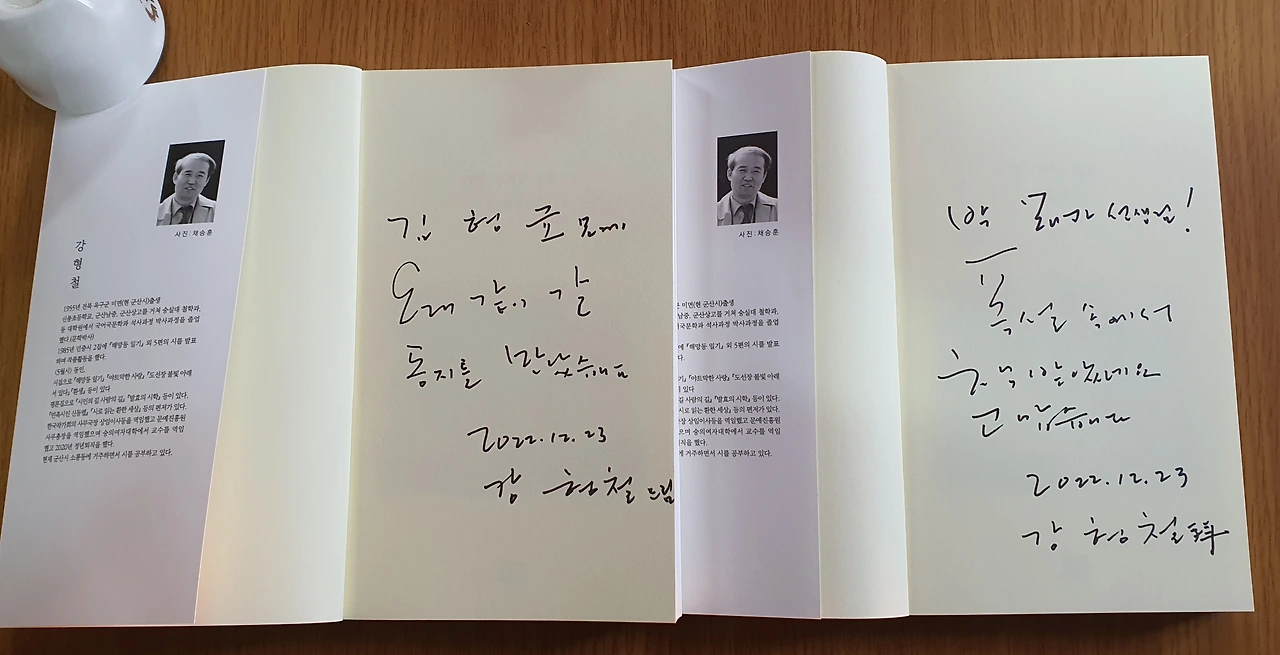 사진:채승훈
강형철
1955년 전북 옥구군 미면(현 군산시)출생
신풍초등학교, 군산남중, 군산상고를 거쳐 숭실대 철학과,
동 대학원에서 국어국문학과 석사과정 박사과정을 졸업
했다.(문학박사)
1985년 민중시 2집에 「해망동 일기」 외 5편의 시를 발표
하며 작품활동을 했다.
《5월시》 동인.
시집으로 「해망동 일기」「야트막한 사랑」「도선장 불빛 아래
서 있다」「환생」 등이 있다
평론집으로 「시인의 길 사람의 길」「발효의 시학」 등이 있다.
한국작가회의 사무국장 상임이사등을 역임했고 문예진흥원
사무총장을 역임했으며 숭의여자대학에서 교수를 역임
했고 2020년 정년퇴직을 했다.
현재 군산시 소룡동에 거주하면서 시를 공부하고 있다.
김형균 님께
오래 같이 갈
동지를 만났습니다
2022.12.23
강형철 드림
사진:채승훈
군 미면(현 군산시)출생
군산남중, 군산상고를 거쳐 숭실대 철학과,
국어국문학과 석사과정 박사과정을 졸업
에 「해망동 일기」 외 5편의 시를 발표
다.
「야트막한 사랑」「도선장 불빛 아래
등이 있다
길 사람의 길」「발효의 시학」 등이 있다.
「시로 읽는 환한 세상」 등의 편저가 있다.
장 상임이사등을 역임했고 문예진흥원
했으며 숭의여자대학에서 교수를 역임
퇴직을 했다.
에 거주하면서 시를 공부하고 있다.
선생님!
폭설 속에서
고맙습니다
2022.12.23
강형철 拜